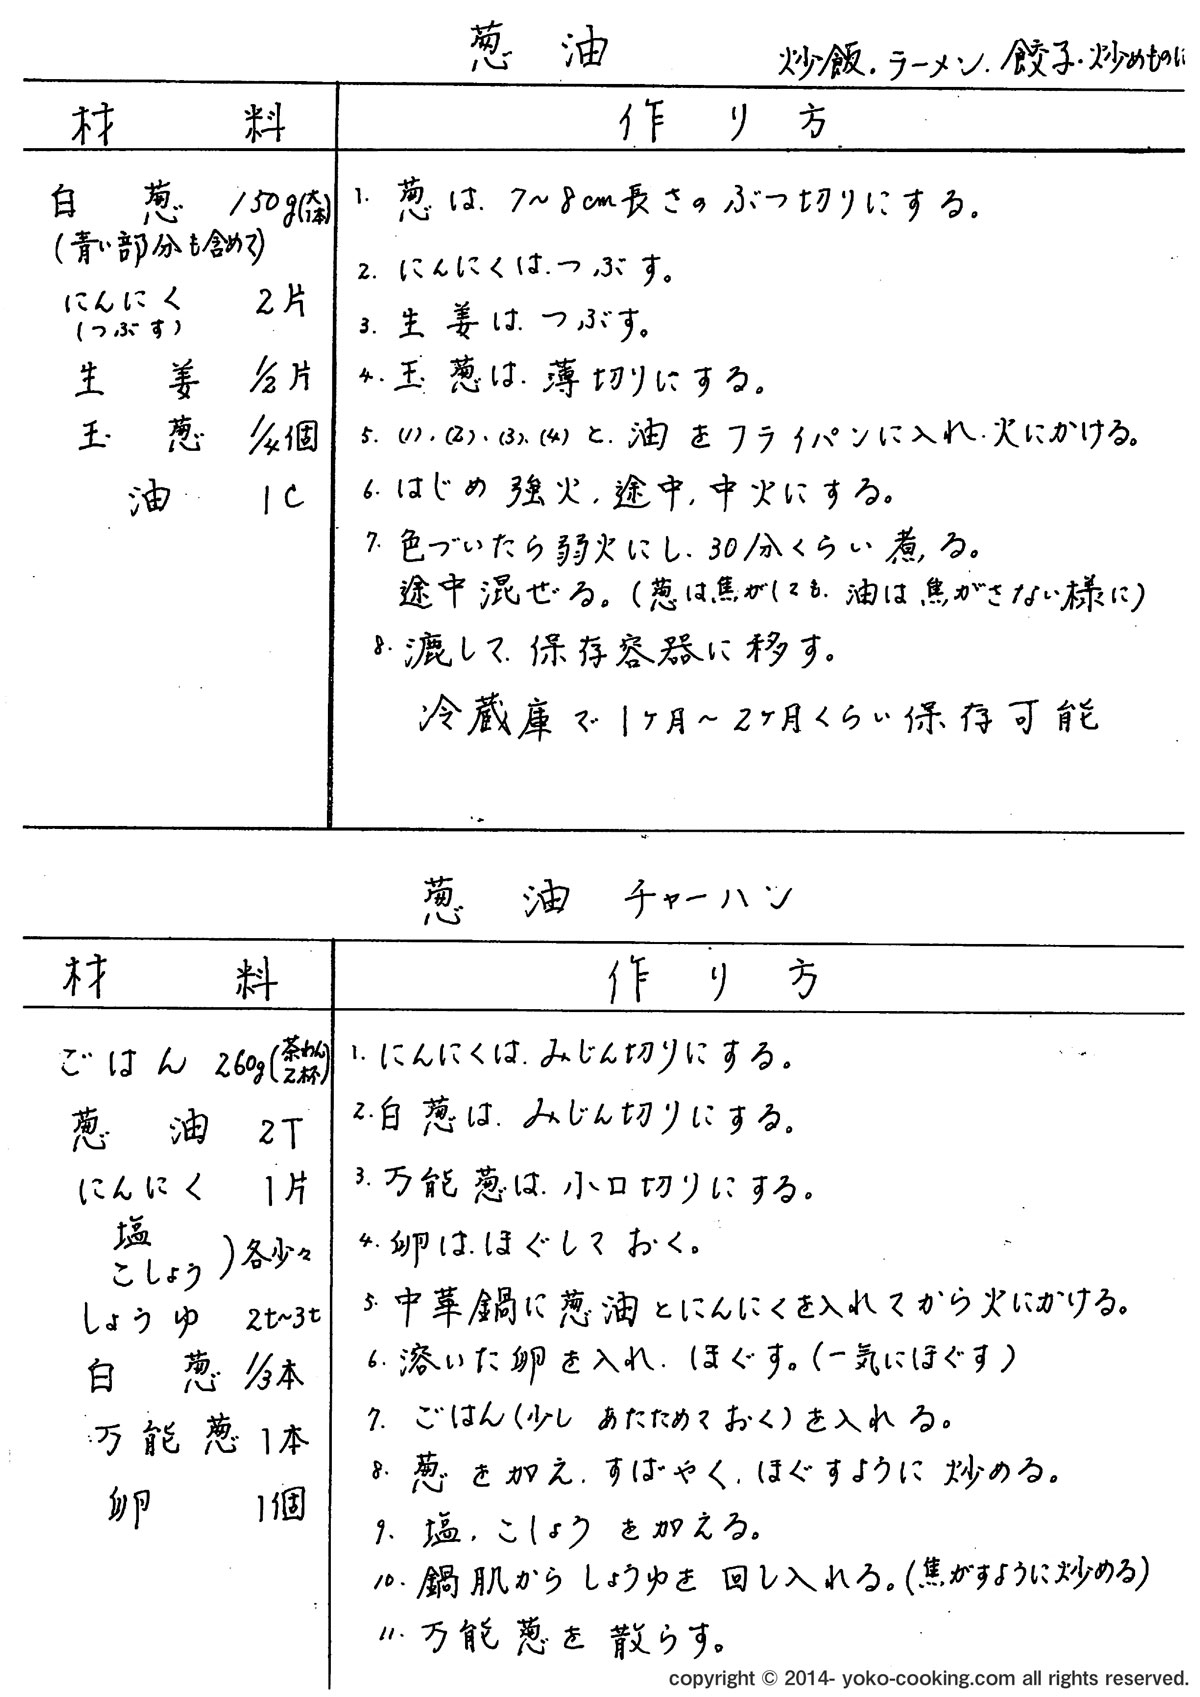 葱油
炒飯．ラーメン．餃子・炒めものに
材料
作り方
白葱 150g(大1本)
(青い部分も含めて)
にんにく 2片
(つぶす)
生姜 1/2片
玉葱 1/4個
油 1C
1. 葱は、7〜8cm長さのぶつ切りにする。
2. にんにくは、つぶす。
3. 生姜は、つぶす。
4. 玉葱は、薄切りにする。
5. (1)、(2)、(3)、(4)と、油をフライパンに入れ、火にかける。
6. はじめ強火、途中、中火にする。
7. 色づいたら弱火にし、30分くらい煮る。
途中混ぜる。(葱は焦がしても、油は焦がさない様に)
8. 漉して、保存容器に移す。
冷蔵庫で1ヶ月〜2ヶ月くらい保存可能
葱油チャーハン
材料
作り方
ごはん 260g(茶わん2杯)
葱油 2T
にんにく 1片
塩
こしょう)各少々
しょうゆ 2t〜3t
白葱 1/3本
万能葱 1本
卵 1個
1. にんにくは、みじん切りにする。
2. 白葱は、みじん切りにする。
3. 万能葱は、小口切りにする。
4. 卵は、ほぐしておく。
5. 中華鍋に葱油とにんにくを入れてから火にかける。
6. 溶いた卵を入れ、ほぐす。(一気にほぐす)
7. ごはん(少しあたためておく)を入れる。
8. 葱を加え、すばやく、ほぐすように炒める。
9. 塩、こしょうを加える。
10. 鍋肌からしょうゆを回し入れる。(焦がすように炒める)
11. 万能葱を散らす。
copyright © 2014- yoko-cooking.com all rights reserved.